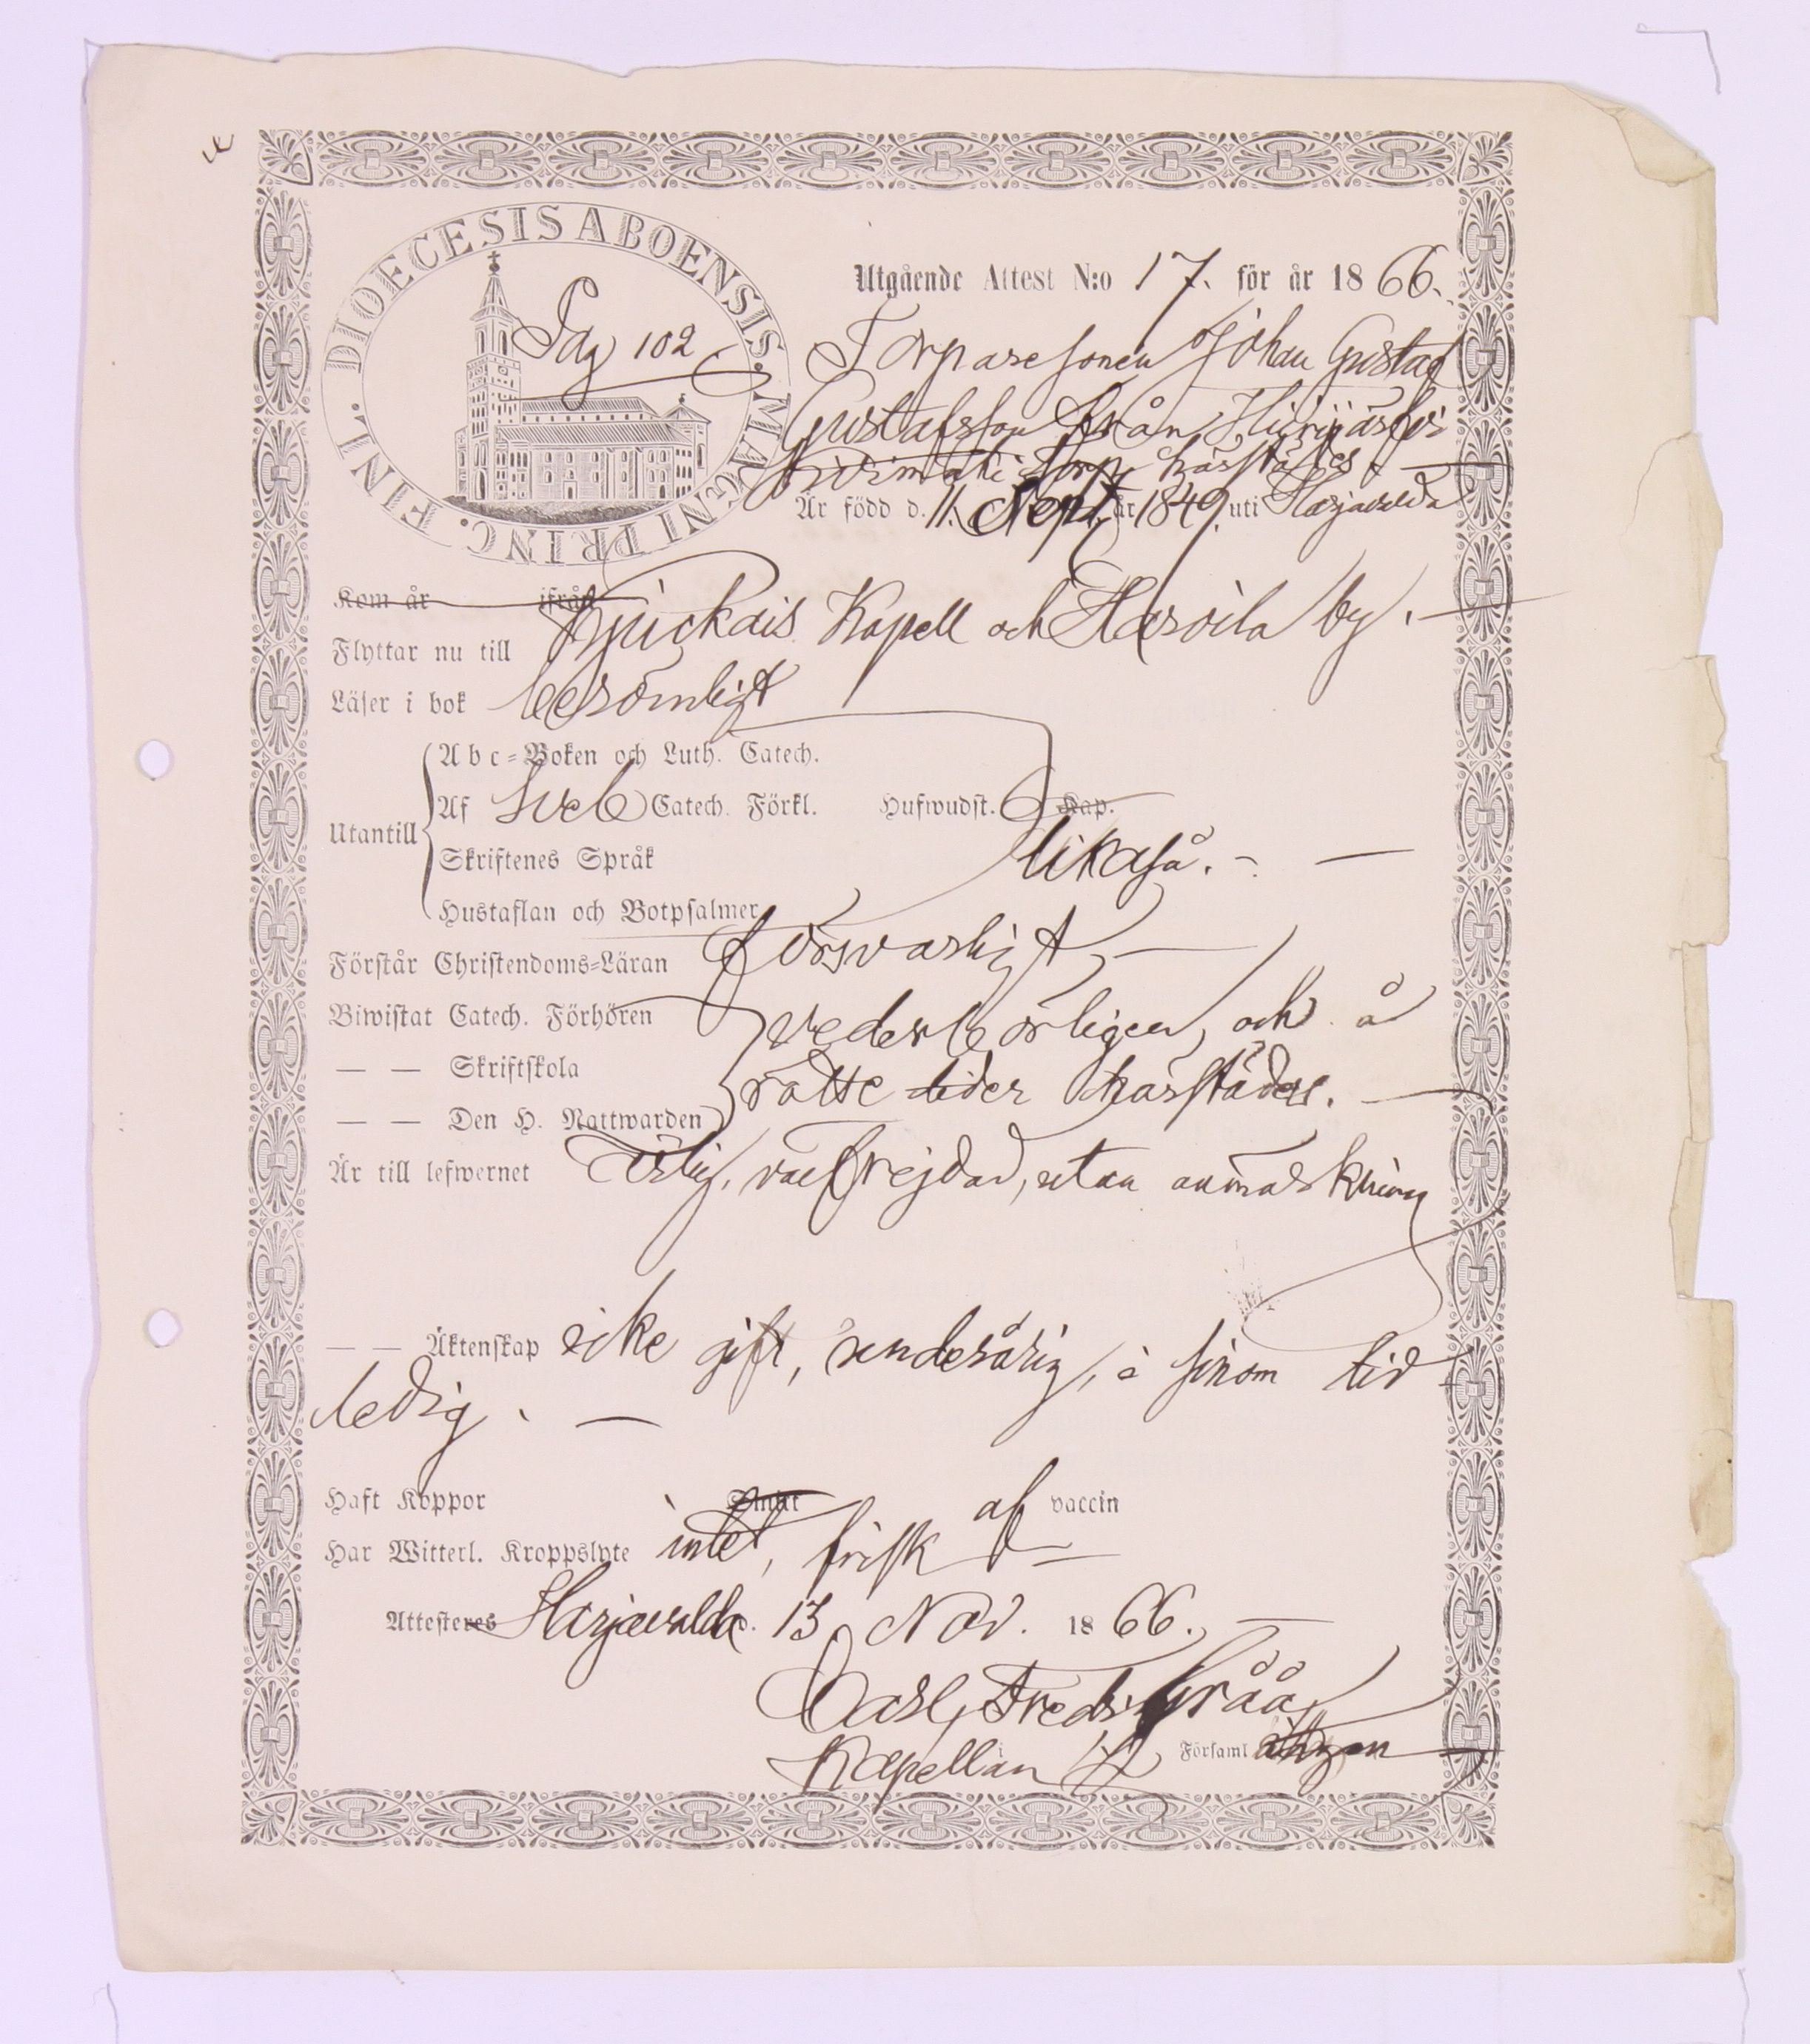 DIOECESIS ABOENSIS. MAGNI PRINC. FINL.
Pag 102
Utgående Attest N:o 17. för år 1866.
Torparesonen Johan Gustaf
Gustafsson från
torp härstädes
Är född d. 11. Sept. år 1849. uti Harjavalda
Kom år ifrån
Flyttar nu till Kjuickais Kapell och Haroila by.
Läser i bok berömligt
Abc-Boken och Luth. Catech.
Utantill Af Sveb Catech. Förkl. Hufwudst. Kap.
likaså.
Skriftenes Språk
Hustaflan och Botpsalmer
Förstår Christendoms-Läran försvarligt,
Biwistat Catech. Förhören vederbörligen, och å
— — Skriftskola rätte tider härstädes.
— — Den H. Nattwarden
Är till lefwernet ärlig, välfrejdad, utan anmärkning
— — Äktenskap icke gift, underårig, i sinom tid
ledig.
Haft Koppor Ympat af vaccin
Har Witterl. Kroppslyte intet, frisk
Attesteres Harjavalda d. 13 Nov. 1866.
Carl Fredr. Gråå
Kapellan i Församl